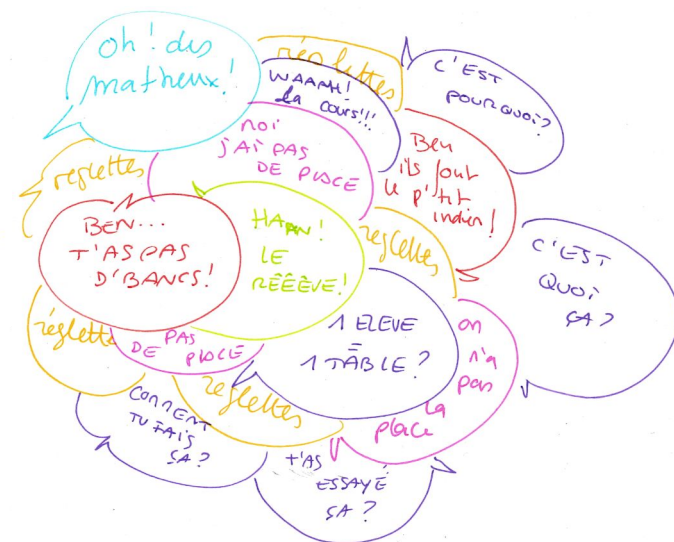 Oh! des
matheux!
réglettes
WAAAH!
la cours!!!
C'EST
POURQUOI?
moi
J'AI PAS
DE PLACE
Ben
ils font
le p'tit
indien!
reglettes
BEN...
T'AS PAS
D'BANCS!
HAAN!
LE
RÊÊÊVE!
reglettes
C'EST
QUOI
ÇA?
réglette
PAS
DE PLACE
1 ELEVE
=
1 TABLE?
on
n'a
pas
la
place
reglettes
COMMENT
TU FAIS
ÇA?
T'AS
ESSAYÉ
ÇA?